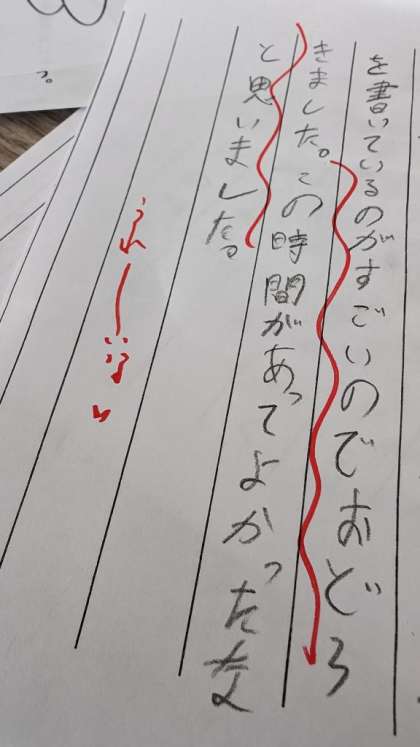 を書いているのがすごいのでおどろ
きました。この時間があってよかったな
と思いました。
うれしいなぁ